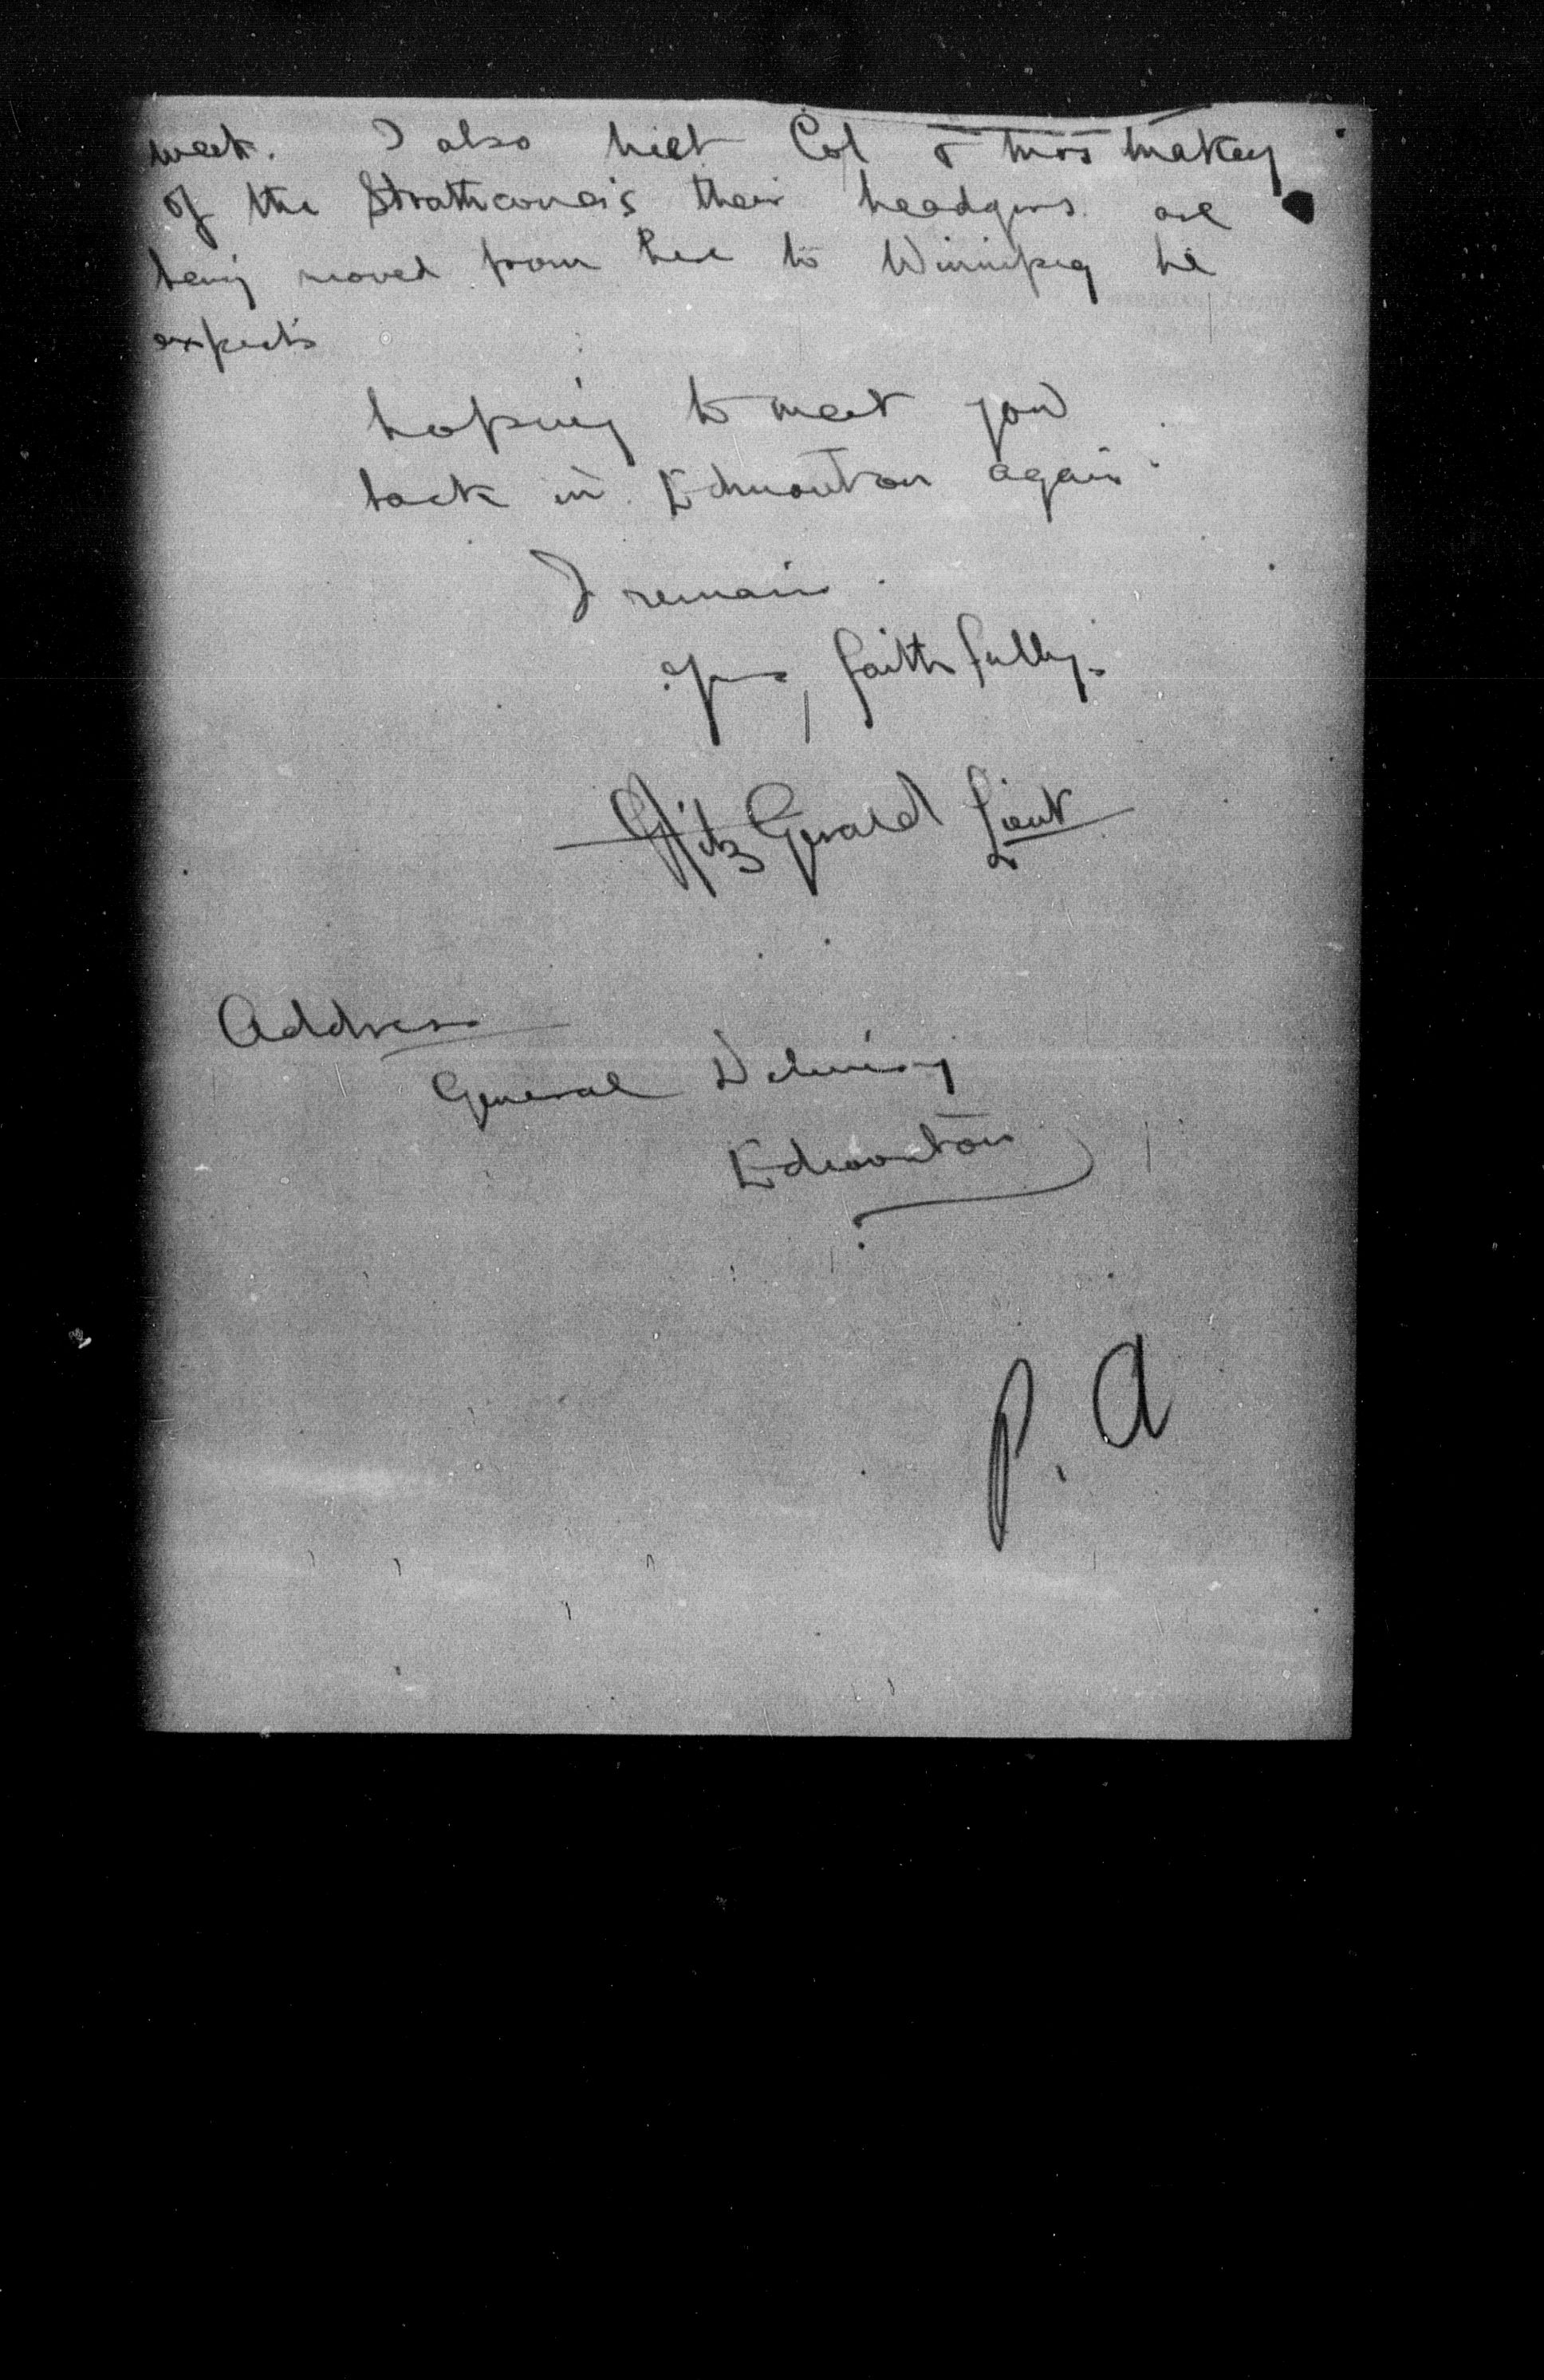 week. I also met Col & Mrs Makey
of the Strathcona's their headqrs. are
being moved from here to Winnipeg he
expects
hoping to meet you
back in Edmonton again.
I remain
Yrs, faithfully.
FitzGerald Lieut
Address
General Delivery
Edmonton
P. A